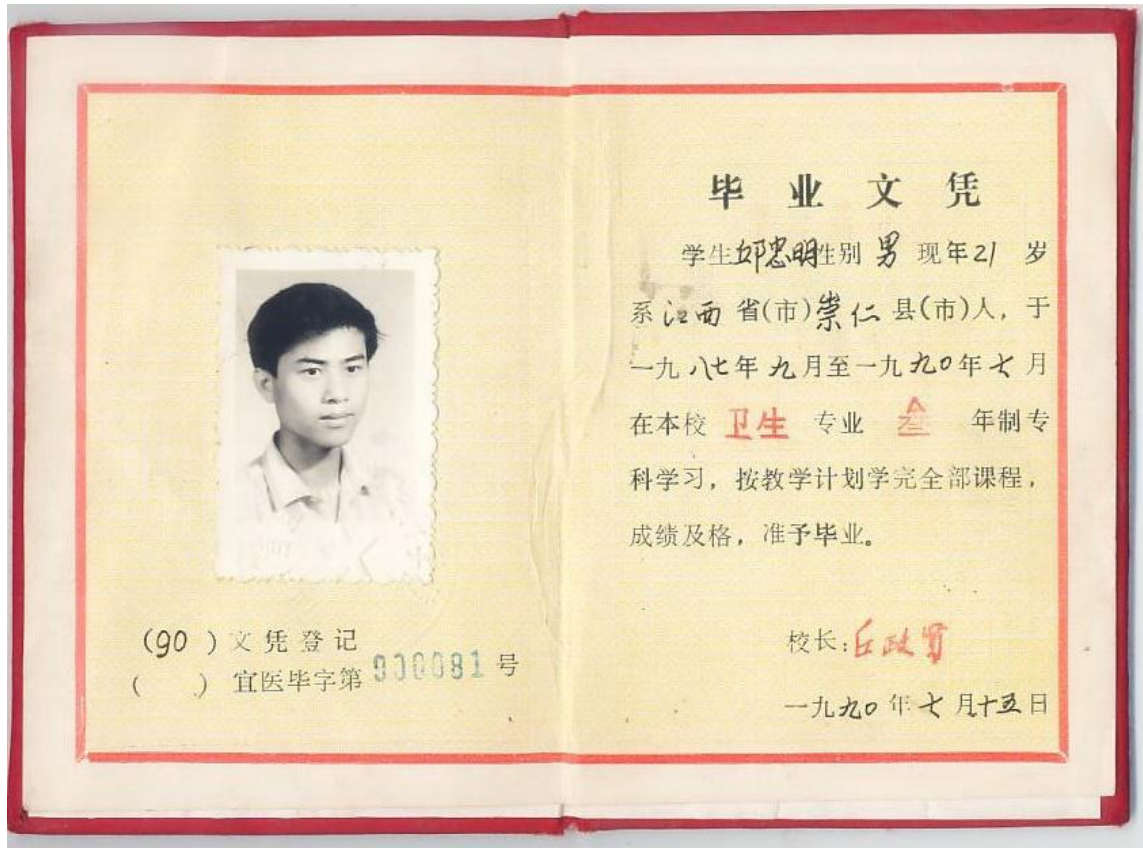 (90 ) 文凭登记
(  ) 宜医毕字第900081号
毕业文凭
学生忠明性别男现年21岁
系江西省(市)崇仁县(市)人，于
一九八七年九月至一九九〇年七月
在本校卫生专业叁年制专
科学习，按教学计划学完全部课程，
成绩及格，准予毕业。
校长:丘政贤
一九九〇年七月十五日